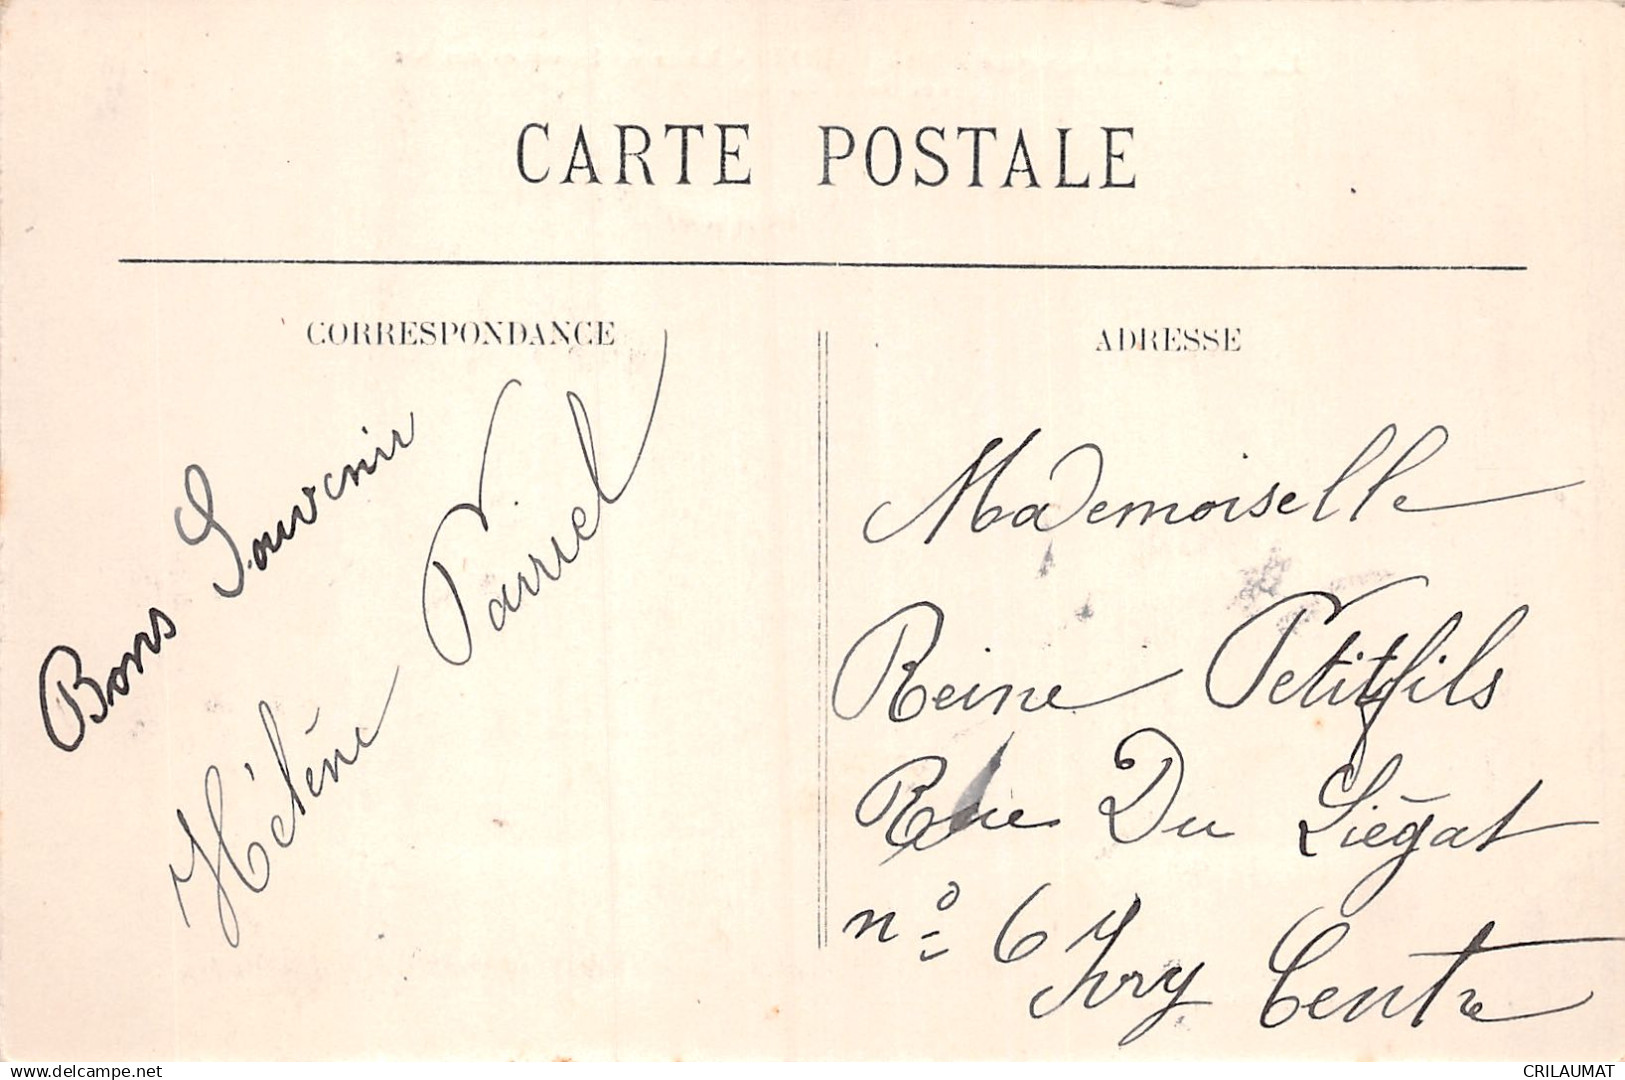 CARTE POSTALE
CORRESPONDANCE
ADRESSE
Bons Souvenir
Hélène Pairiel
Mademoiselle
Reine Petitfils
Rue Du Liégat
n° 6 Ivry Centre
delcampe.net
CRILAUMAT